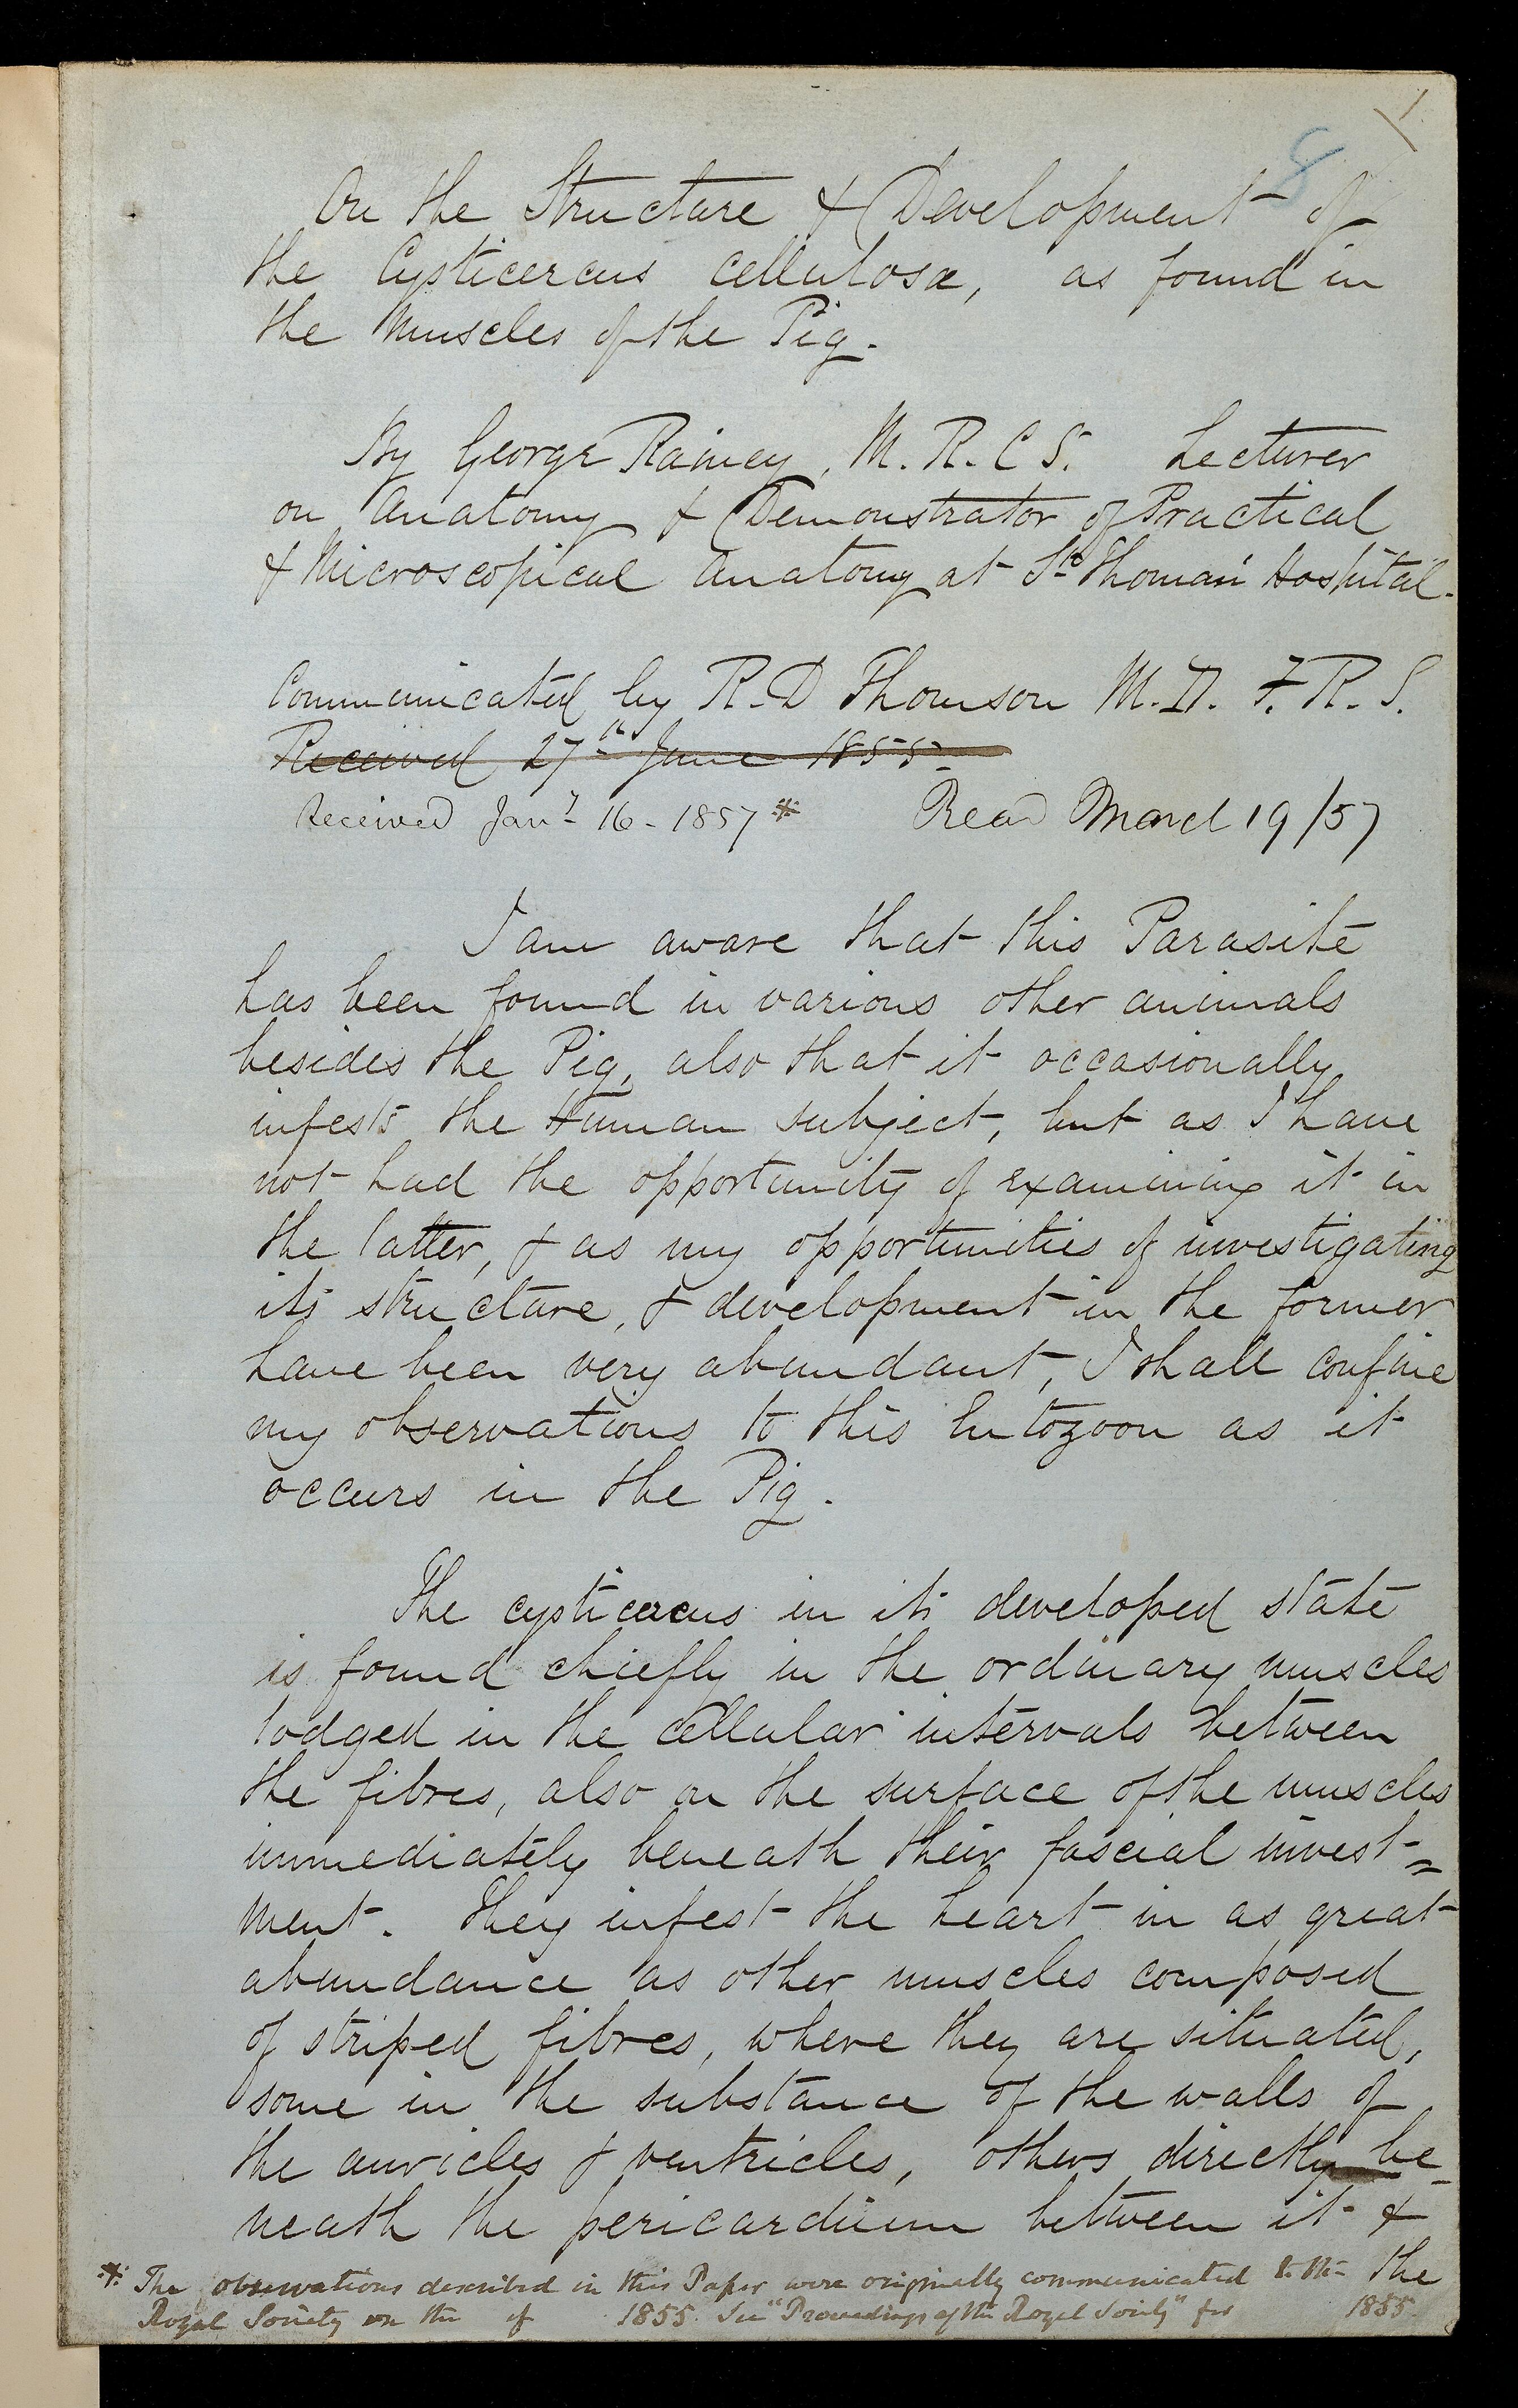 1
8
On the Structure & Development of
the Cysticercus cellulosæ, as found in
the Muscles of the Pig.
By George Rainey, M. R. C S. Lecturer
on Anatomy & Demonstrator of Practical
& Microscopical Anatomy at St Thomas' Hospital.
Communicated by R. D Thomson M.D. F. R. S.
Received 27th June 1855
Received Jany 16 - 1857 * Read March 19/57
I am aware that this Parasite
has been found in various other animals
besides the Pig, also that it occasionally
infests the Human subject, but as I have
not had the opportunity of examining it in
the latter, & as my opportunities of investigating
its structure, & development in the former
have been very abundant, I shall confine
my observations to this Entozoon as it
occurs in the Pig.
The cysticercus in its developed state
is found chiefly in the ordinary muscles
lodged in the cellular intervals between
the fibres, also on the surface of the muscles
immediately beneath their fascial invest=
ment. They infest the heart in as great
abundance as other muscles composed
of striped fibres, where they are situated,
some in the substance of the walls of
the auricles & ventricles, others directly be_
neath the pericardium between it &
the
* The observations described in this Paper were originally communicated to the
Royal Society on the of 1855. See "Proceedings of the Royal Society" for 1855.